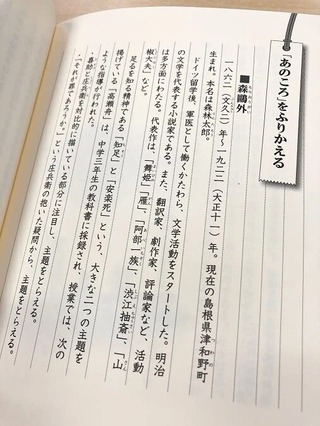 「あのころ」をふりかえる
■森鷗外
一八六二(文久二)年〜一九二二(大正十一)年。現在の島根県津和野町
生まれ。本名は森林太郎。
ドイツ留学後、軍医として働くかたわら、文学活動をスタートした。明治
の文学を代表する小説家である。また、翻訳家、劇作家、評論家など、活動
は多方面にわたる。代表作は、「舞姫」「雁」、「阿部一族」、「渋江抽斎」、「山
椒大夫」など。
足るを知る精神である「知足」と「安楽死」という、大きな二つの主題を
掲げている「高瀬舟」は、中学三年生の教科書に採録され、授業では、次の
ような指導が行われた。
・喜助と庄兵衛を対比的に描いている部分に注目し、主題をとらえる。
・「それが罪であろうか。」という庄兵衛の抱いた疑問から、主題をとらえる。